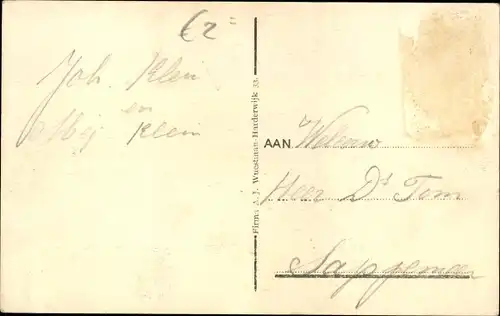 €2=
Joh. Klein
en
Mej Klein
Firma A. J. Wuestman-Harderwijk 33.
AAN Weleerw
Heer Ds Tom
Sappemeer